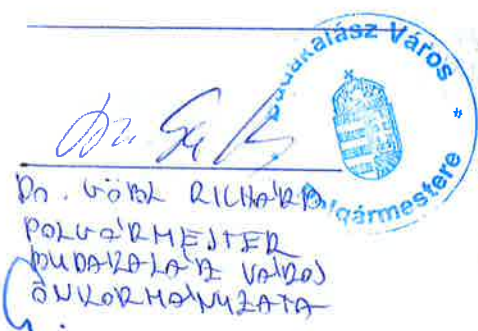 Budakalász Város
Polgármestere
Dr. GÖBL RICHÁRD
POLGÁRMESTER
BUDAKALÁSZ VÁROS
ÖNKORMÁNYZATA